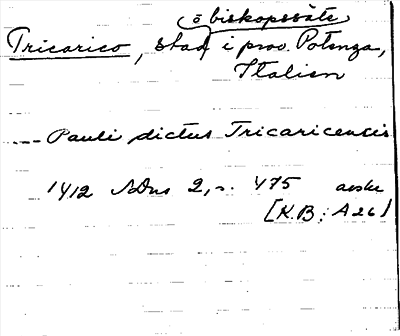 ō biskopssäte
Tricarico, stad i prov. Potenza,
Italien
--- Pauli dictus Tricaricensis
1412 SDns 2, s. 475 avskr
[K.B: A26]